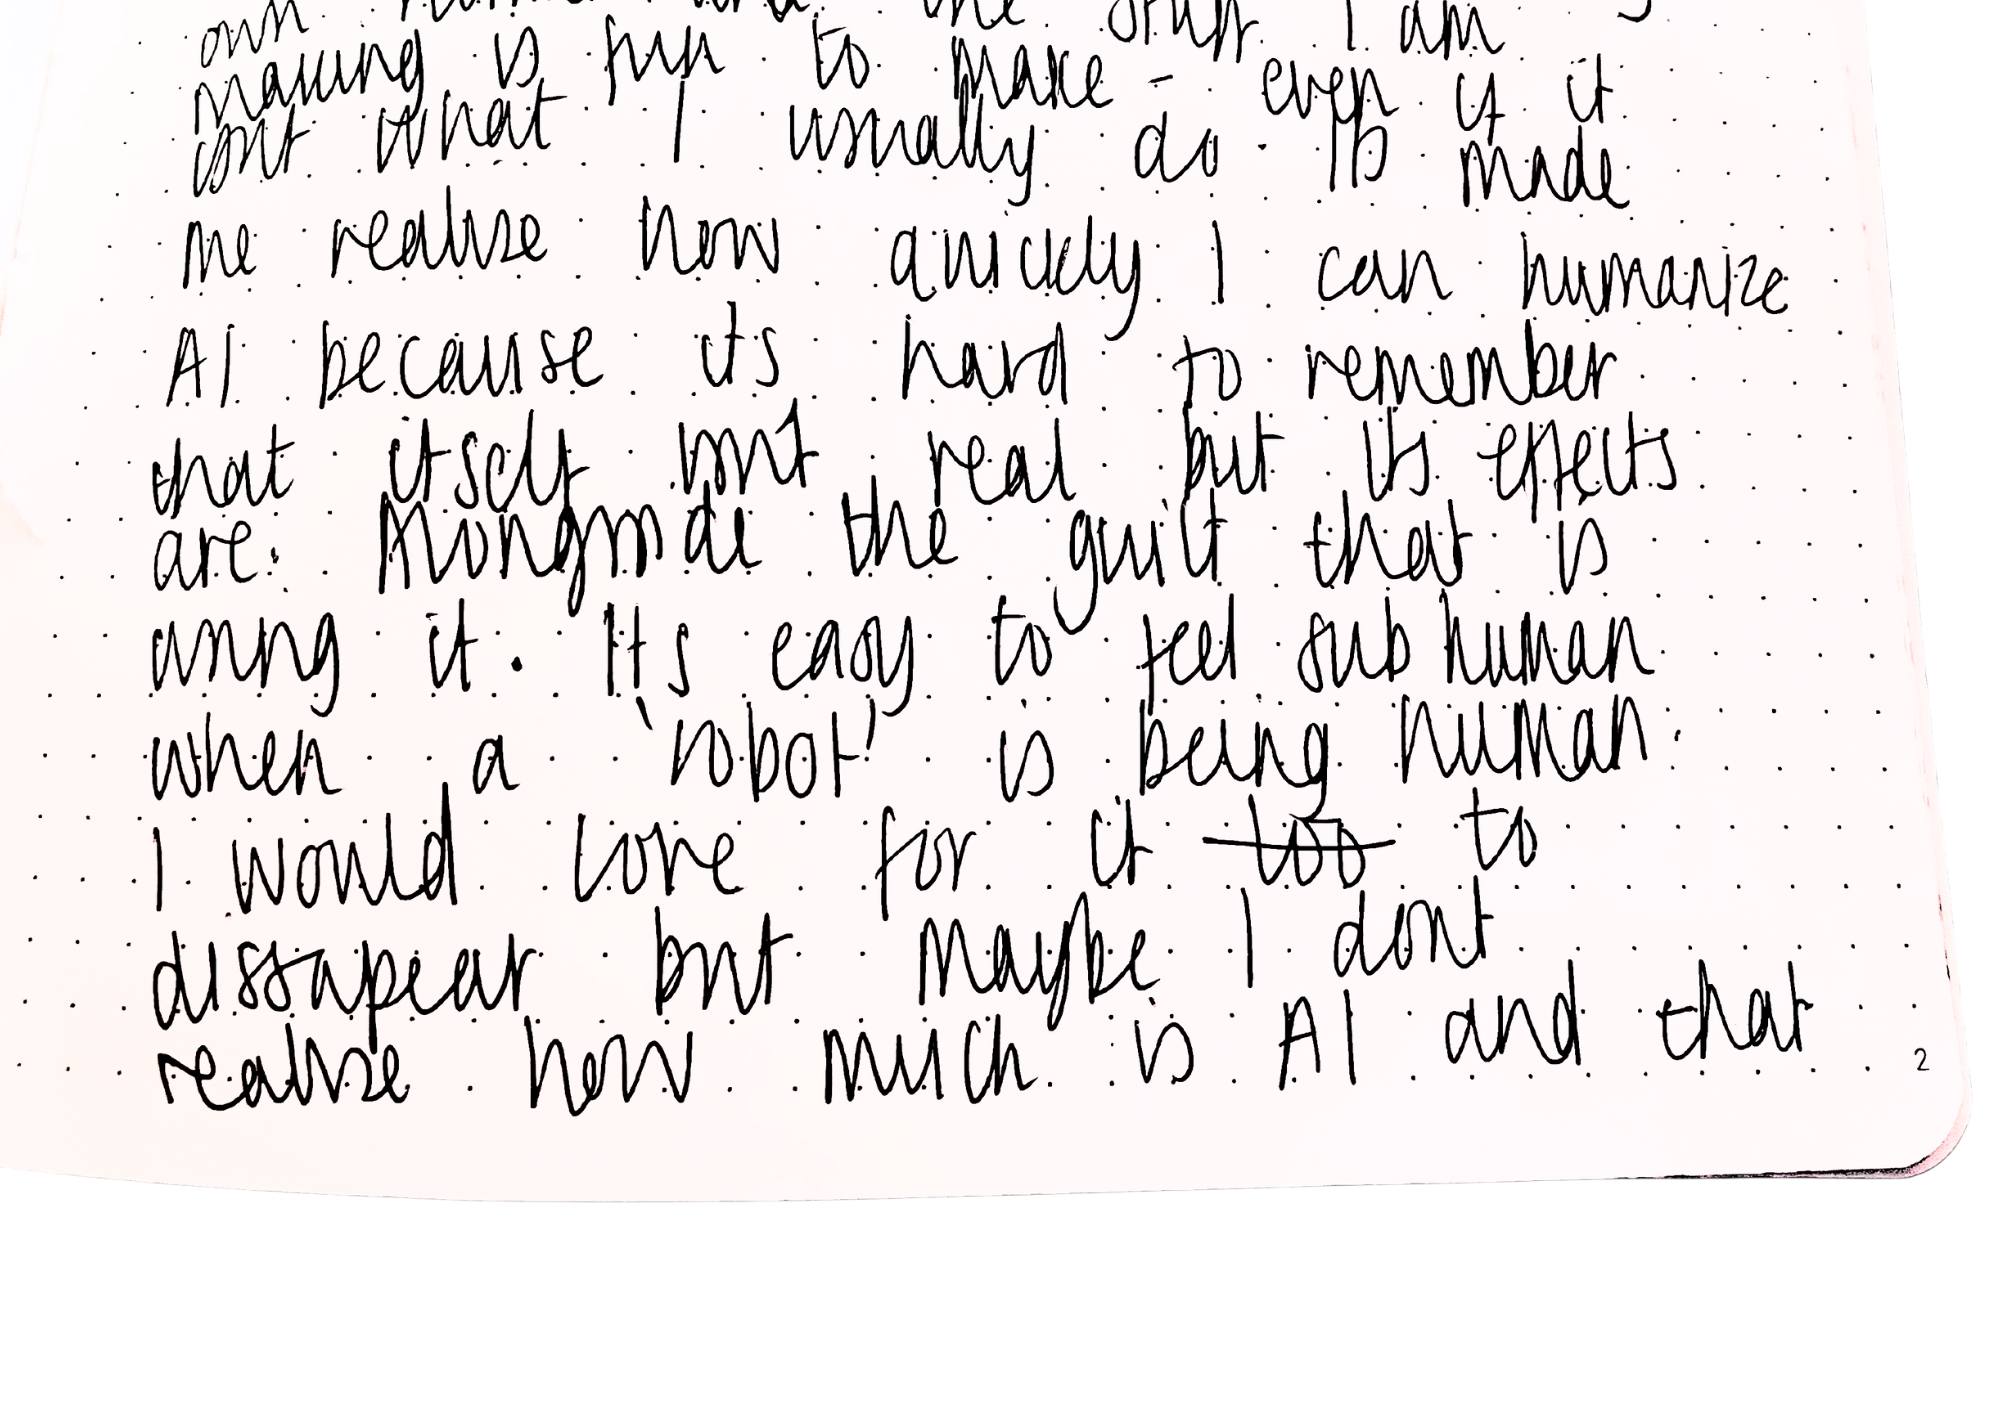 own and the stuff I am
making is fun to make - even if it
isnt what I usually do. Its made
me realise how quickly I can humanize
AI because its hard to remember
that itself isnt real but its effects
are. Alongside the guilt that is
using it. It's easy to feel sub human
when a 'robot' is being human.
I would love for it too to
dissapear but maybe I dont
realise how much is AI and that
2